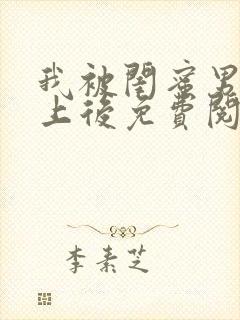 我被閨蜜男
上後免費閱
李素芝